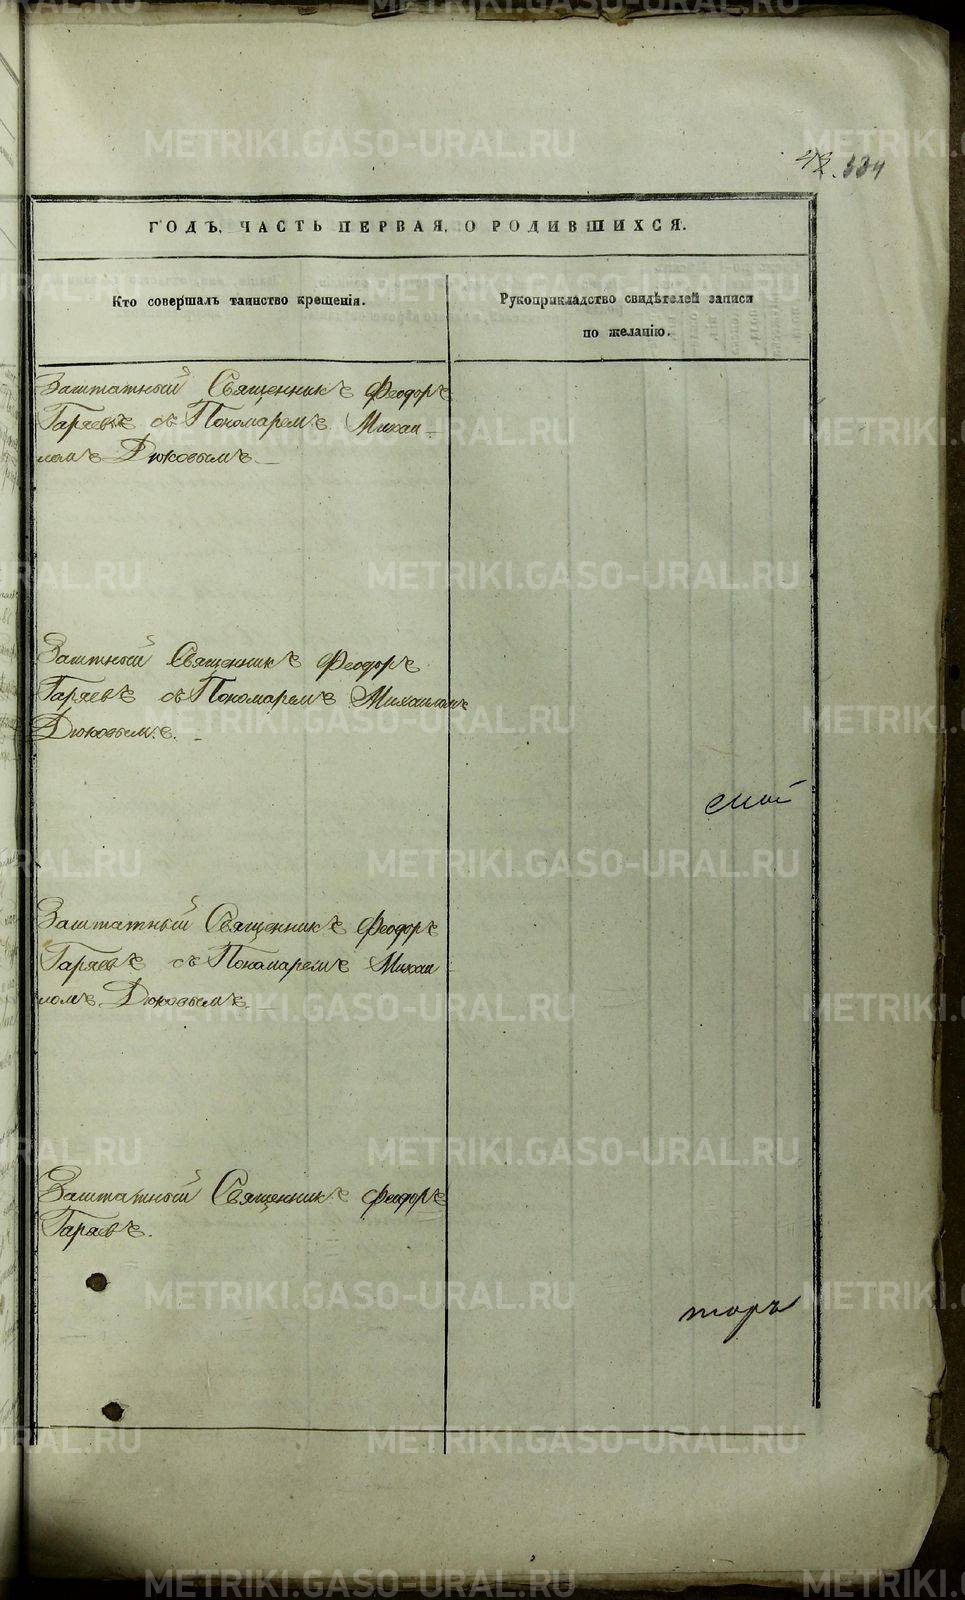 42. 534
ГОДЪ, ЧАСТЬ ПЕРВАЯ, О РОДИВШИХСЯ.
Кто совершалъ таинство крещенія.
Рукоприкладство свидѣтелей записи
по желанію.
Заштатный Священникъ Феодоръ
Гаряевъ съ Пономаремъ Михаи
ломъ Дюковымъ
Заштный Священникъ Феодоръ
Гаряевъ съ Пономаремъ Михаиломъ
Дюковымъ.
ской
Заштатный Священникъ Феодоръ
Гаряевъ съ Пономаремъ Михаи
ломъ Дюковымъ
Заштатный Священникъ Феодоръ
Гаряевъ.
торъ
METRIKI.GASO-URAL.RU